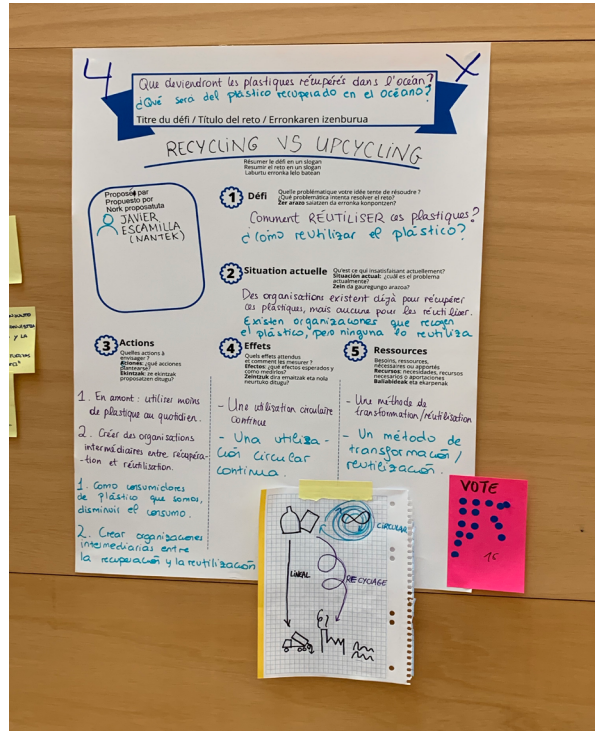 4
X
Que deviendront les plastiques récupérés dans l'océan?
¿Qué será del plástico recuperado en el océano?
Titre du défi / Título del reto / Erronkaren izenburua
RECYCLING VS UPCYCLING
Résumer le défi en un slogan
Resumir el reto en un slogan
Laburtu erronka lelo batean
Proposé par
Propuesto por
Nork proposatuta
JAVIER
ESCAMILLA
(NANTEK)
1 Défi
Quelle problématique votre idée tente de résoudre ?
¿Qué problemática intenta resolver el reto?
Zer arazo saiatzen da erronka konpontzen?
Comment RÉUTILISER ces plastiques?
¿Cómo reutilizar el plástico?
2 Situation actuelle
Qu'est ce qui insatisfaisant actuellement?
Situación actual: ¿cuál es el problema
actualmente?
Zein da gauregungo arazoa?
Des organisations existent déjà pour récupérer
ces plastiques, mais aucune pour les réutiliser.
Existen organizaciones que recogen
el plástico, pero ninguna lo reutiliza
3 Actions
Quelles actions à
envisager ?
Acciones: ¿qué acciones
plantearse?
Ekintzak: ze ekintzak
proposatzen ditugu?
1. En amont: utiliser moins
de plastique au quotidien.
2. Créer des organisations
intermédiaires entre récupéra-
-tion et réutilisation.
1. Como consumidores
de plástico que somos,
disminuir el consumo.
2. Crear organizaciones
intermediarias entre
la recuperación y la reutilización
4 Effets
Quels effets attendus
et comment les mesurer ?
Efectos: ¿qué efectos esperados y
como medirlos?
Zeintzuk dira emaitzak eta nola
neurtuko ditugu?
- Une utilisation circulaire
continue
- Una utiliza-
ción circular
continua.
5 Ressources
Besoins, ressources,
nécessaires ou apportés
Recursos: necesidades, recursos
necesarios o aportaciones
Baliabideak eta ekarpenak
- Une méthode de
transformation/réutilisation
- Un método de
transformación/
reutilización.
CIRCULAR
LINEAL
RECYCLAGE
VOTE